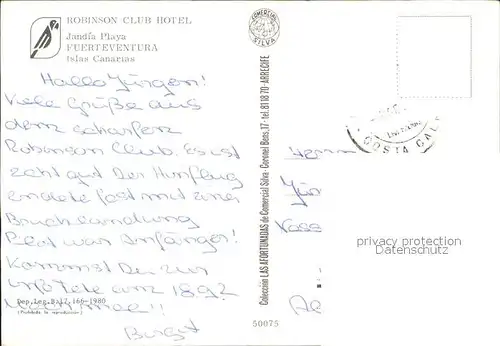 ROBINSON CLUB HOTEL
Jandía Playa
FUERTEVENTURA
Islas Canarias
Hallo Jürgen!
Viele Grüße aus
dem scharfen
Robinson Club. Es ist
echt gut. Der Hinflug
endete fast mit einer
Bruchlandung
Pilot war Anfänger!
Kommst Du zur
Fete am 18.9?
Birgit
Dep. Leg. B. 12.166-1980
(Prohibida la reproducción)
COMERCIAL
SILVA
Colección LAS AFORTUNADAS de Comercial Silva - Coronel Bens, 17 - tel. 81 18 70 - ARRECIFE
50075
COSTA CAL
Herrn
Jür
privacy protection
©Akpool.de